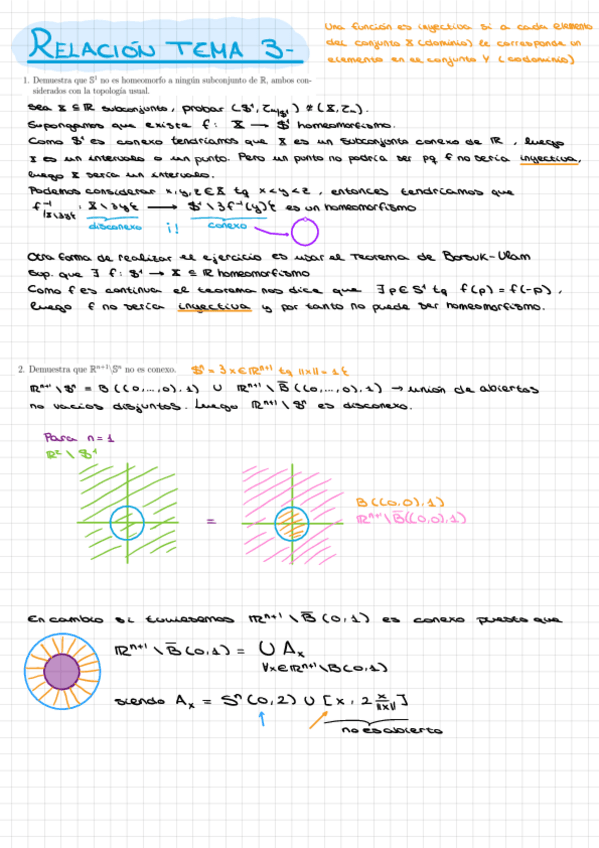 RELACIÓN TEMA 3-
Una función es inyectiva si a cada elemento
del conjunto X (dominio) le corresponde un
elemento en el conjunto Y (codominio)
1. Demuestra que S¹ no es homeomorfo a ningún subconjunto de ℝ, ambos con-
siderados con la topología usual.
Sea X ⊆ ℝ subconjunto, probar (S¹, τu|S¹) ≇ (X, τu).
Supongamos que existe f: X → S¹ homeomorfismo.
Como S¹ es conexo tendríamos que X es un subconjunto conexo de ℝ, luego
X es un intervalo o un punto. Pero un punto no podría ser pq f no sería inyectiva,
luego X sería un intervalo.
Podemos considerar x, y, z ∈ X tq x < y < z, entonces tendríamos que
f⁻¹|X\{y} : X \ {y} → S¹ \ {f⁻¹(y)} es un homeomorfismo
disconexo ¡! conexo
Otra forma de realizar el ejercicio es usar el Teorema de Borsuk-Ulam
Sup. que ∃ f: S¹ → X ⊆ ℝ homeomorfismo
Como f es continua el teorema nos dice que ∃p∈S¹ tq f(p) = f(-p),
luego f no sería inyectiva y por tanto no puede ser homeomorfismo.
2. Demuestra que ℝⁿ⁺¹\Sⁿ no es conexo. Sⁿ = {x∈ℝⁿ⁺¹ tq ||x|| = 1}
ℝⁿ⁺¹ \ Sⁿ = B((0,...,0),1) ∪ ℝⁿ⁺¹ \ B̄((0,...,0),1) → unión de abiertos
no vacíos disjuntos. Luego ℝⁿ⁺¹ \ Sⁿ es disconexo.
Para n=1
ℝ² \ S¹
=
B((0,0),1)
ℝⁿ⁺¹\B̄((0,0),1)
En cambio si tuviesemos ℝⁿ⁺¹ \ B̄(0,1) es conexo puesto que
ℝⁿ⁺¹ \ B̄(0,1) = ∪ Aₓ
∀x∈ℝⁿ⁺¹\B(0,1)
siendo Aₓ = Sⁿ(0,2) ∪ [x, 2 x/||x||]
no es abierto